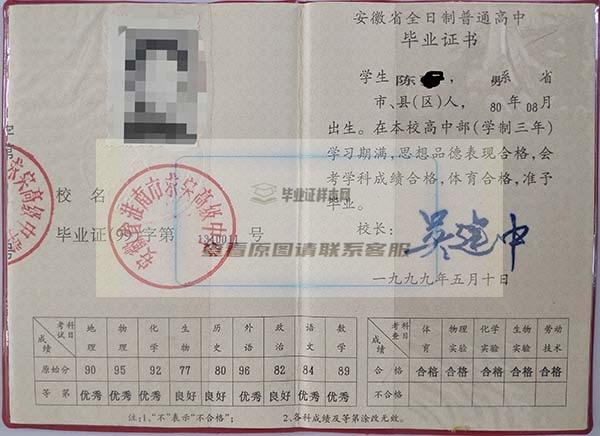 安徽省全日制普通高中
毕业证书
学生 陈 ， 男系 省
市、县(区)人， 80 年 08 月
出生。在本校高中部(学制三年)
学习期满，思想品德表现合格，会
考学科成绩合格，体育合格，准予
毕业。
校长： 吴建中
一九九九年五月十日
校 名
毕业证 99 字第 号
毕业证样本网
查看原图请联系客服
考试科目 成绩 地理 物理 化学 生物 历史 外语 政治 语文 数学
原始分 90 95 92 77 80 96 82 84 89
等 第 优秀 优秀 优秀 良好 良好 优秀 良好 优秀 优秀
考查科目 成绩 体育 物理实验 化学实验 生物实验 劳动技术
合 格 合格 合格 合格 合格 合格
不合格
注:1、"不"表示"不合格"； 2、各科成绩及等第涂改无效。